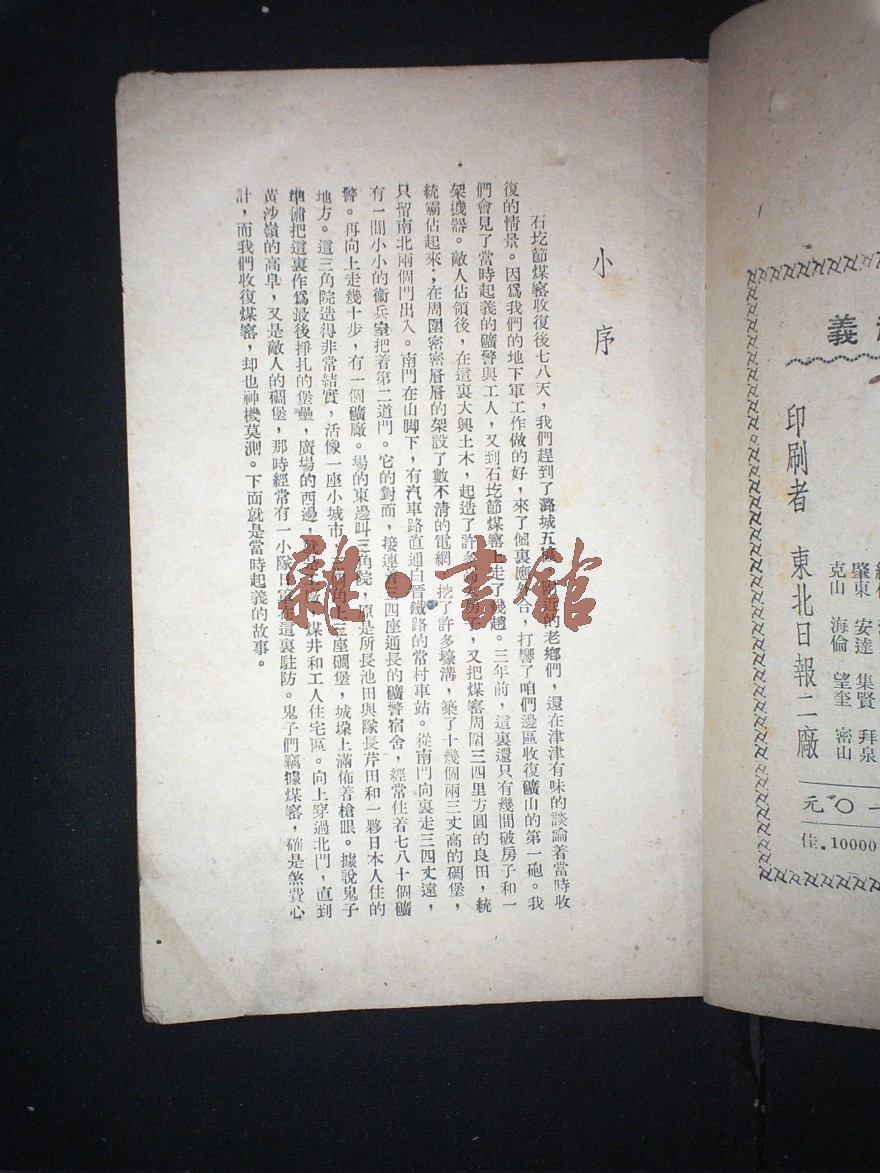 小序
石圪節煤窰收復後七八天,我們趕到了潞城五
附近的老鄉們,還在津津有味的談論着當時收
復的情景。因爲我們的地下軍工作做的好,來了個裏應外合,打響了咱們邊區收復礦山的第一砲。我
們會見了當時起義的礦警與工人,又到石圪節煤窰上走了幾趟。三年前,這裏還只有幾間破房子和一
架機器。敵人佔領後,在這裏大興土木,起造了許多
房子,又把煤窰周圍三四里方圓的良田,統
統霸佔起來;在周圍密密層層的架設了數不清的電網,挖了許多壕溝,築了十幾個兩三丈高的碉堡,
只留南北兩個門出入。南門在山脚下,有汽車路直通白晉鐵路的常村車站。從南門向裏走三四丈遠,
有一間小小的衞兵室把着第二道門。它的對面,接連着三四座通長的礦警宿舍,經常住着七八十個礦
警。再向上走幾十步,有一個礦廠。場的東邊叫三角院,原是所長池田與隊長芹田和一夥日本人住的
地方。這三角院造得非常結實,活像一座小城市,三個角上三座碉堡,城垛上滿佈着槍眼。據說鬼子
準備把這裏作爲最後掙扎的堡壘,廣場的西邊,
煤井和工人住宅區。向上穿過北門,直到
黃沙嶺的高阜,又是敵人的碉堡,那時經常有一小隊日軍在這裏駐防。鬼子們竊據煤窰,確是煞費心
計,而我們收復煤窰,却也神機莫測。下面就是當時起義的故事。
雜·書館
義
印刷者 東北日報二廠
肇東 安達 集賢 拜泉
克山 海倫 望奎 密山
元〇一
佳.10000